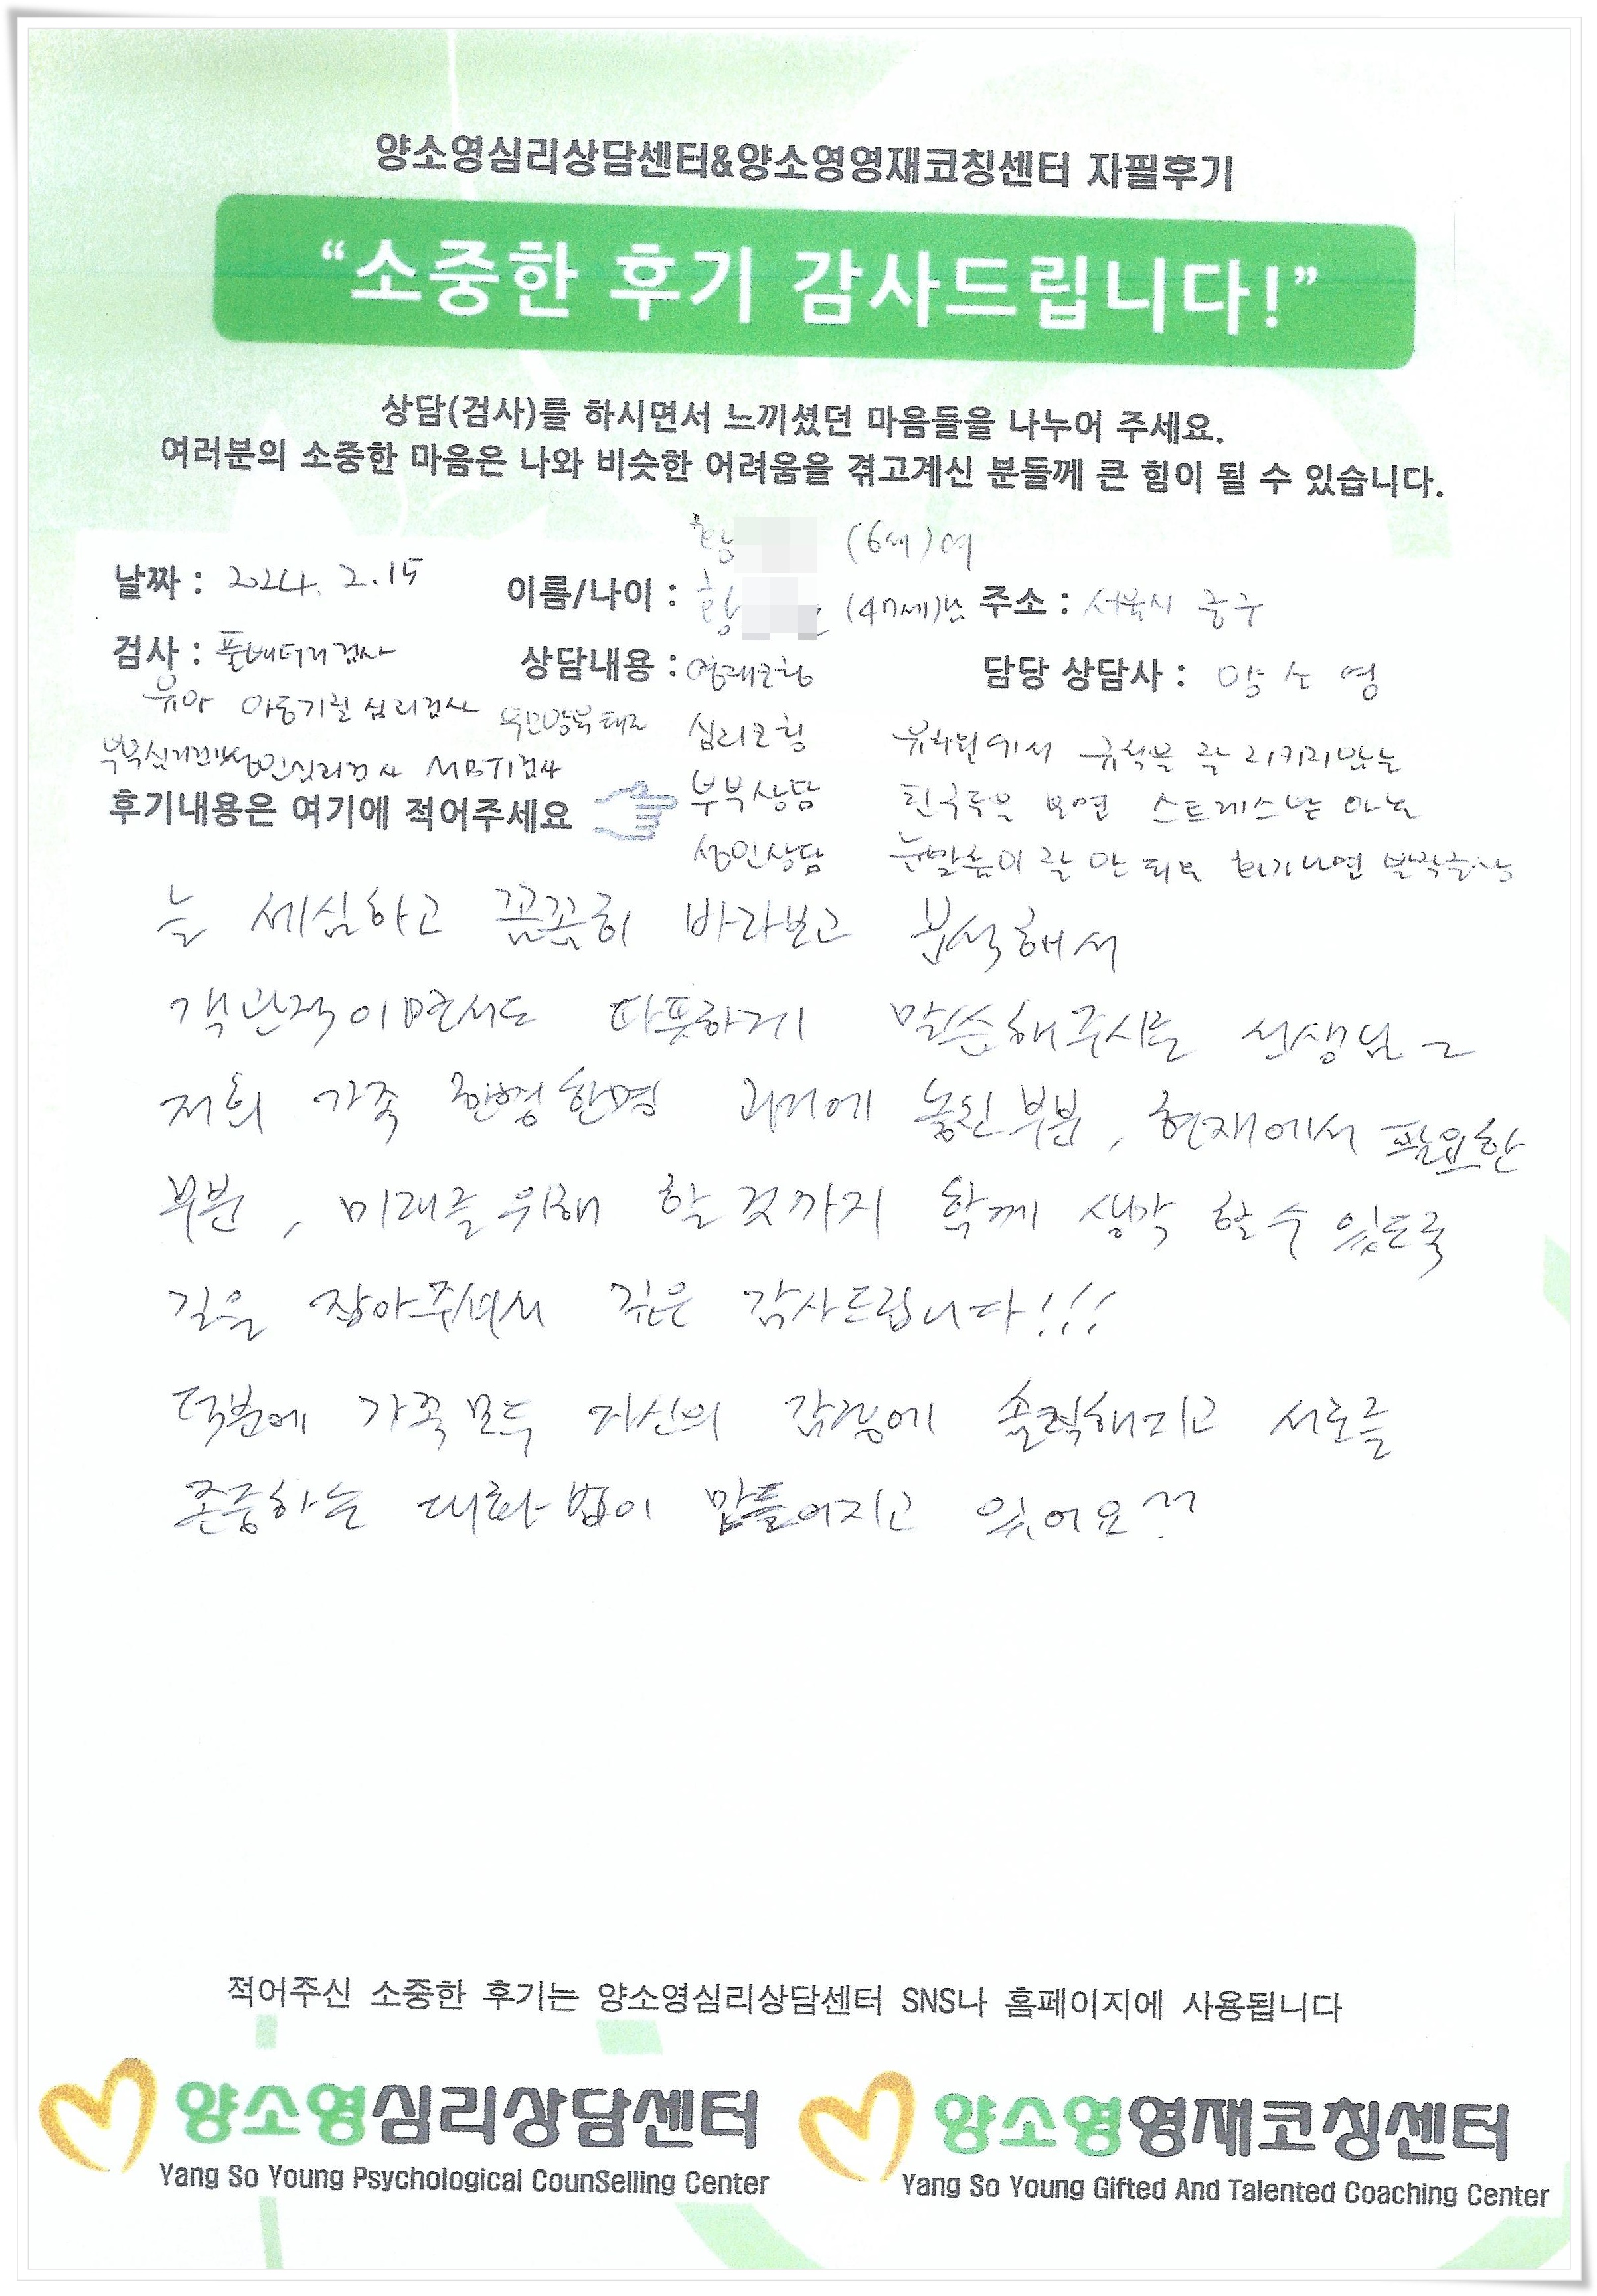 양소영심리상담센터&양소영영재코칭센터 자필후기
“소중한 후기 감사드립니다!”
상담(검사)를 하시면서 느끼셨던 마음들을 나누어 주세요.
여러분의 소중한 마음은 나와 비슷한 어려움을 겪고계신 분들께 큰 힘이 될 수 있습니다.
(6세)여
날짜 : 2024. 2. 15 이름/나이 : (47세)남 주소 : 서울시 중구
검사 : 풀배터리검사 상담내용 : 영재코칭 담당 상담사 : 양소영
유아 아동기질 심리검사 부모양육태도 심리코칭 유치원에서 규칙을 잘 지키지않는
부모심리검사 성인심리검사 MBTI검사 부부상담 친구들을 보면 스트레스받는 아이
후기내용은 여기에 적어주세요
성인상담 잘 안 되고 화가나면
늘 세심하고 꼼꼼히 바라보고 분석해서
객관적이면서도 따뜻하게 말씀해주시는 선생님~
저희 가족 한명한명 과거에 놓친부분, 현재에서 필요한
부분, 미래를위해 할것까지 함께 생각 할수 있도록
길을 잡아주셔서 깊은 감사드립니다!!!
덕분에 가족모두 자신의 감정에 솔직해지고 서로를
존중하는 대화법이 만들어지고 있어요^^
적어주신 소중한 후기는 양소영심리상담센터 SNS나 홈페이지에 사용됩니다
양소영심리상담센터 양소영영재코칭센터
Yang So Young Psychological CounSelling Center Yang So Young Gifted And Talented Coaching Center